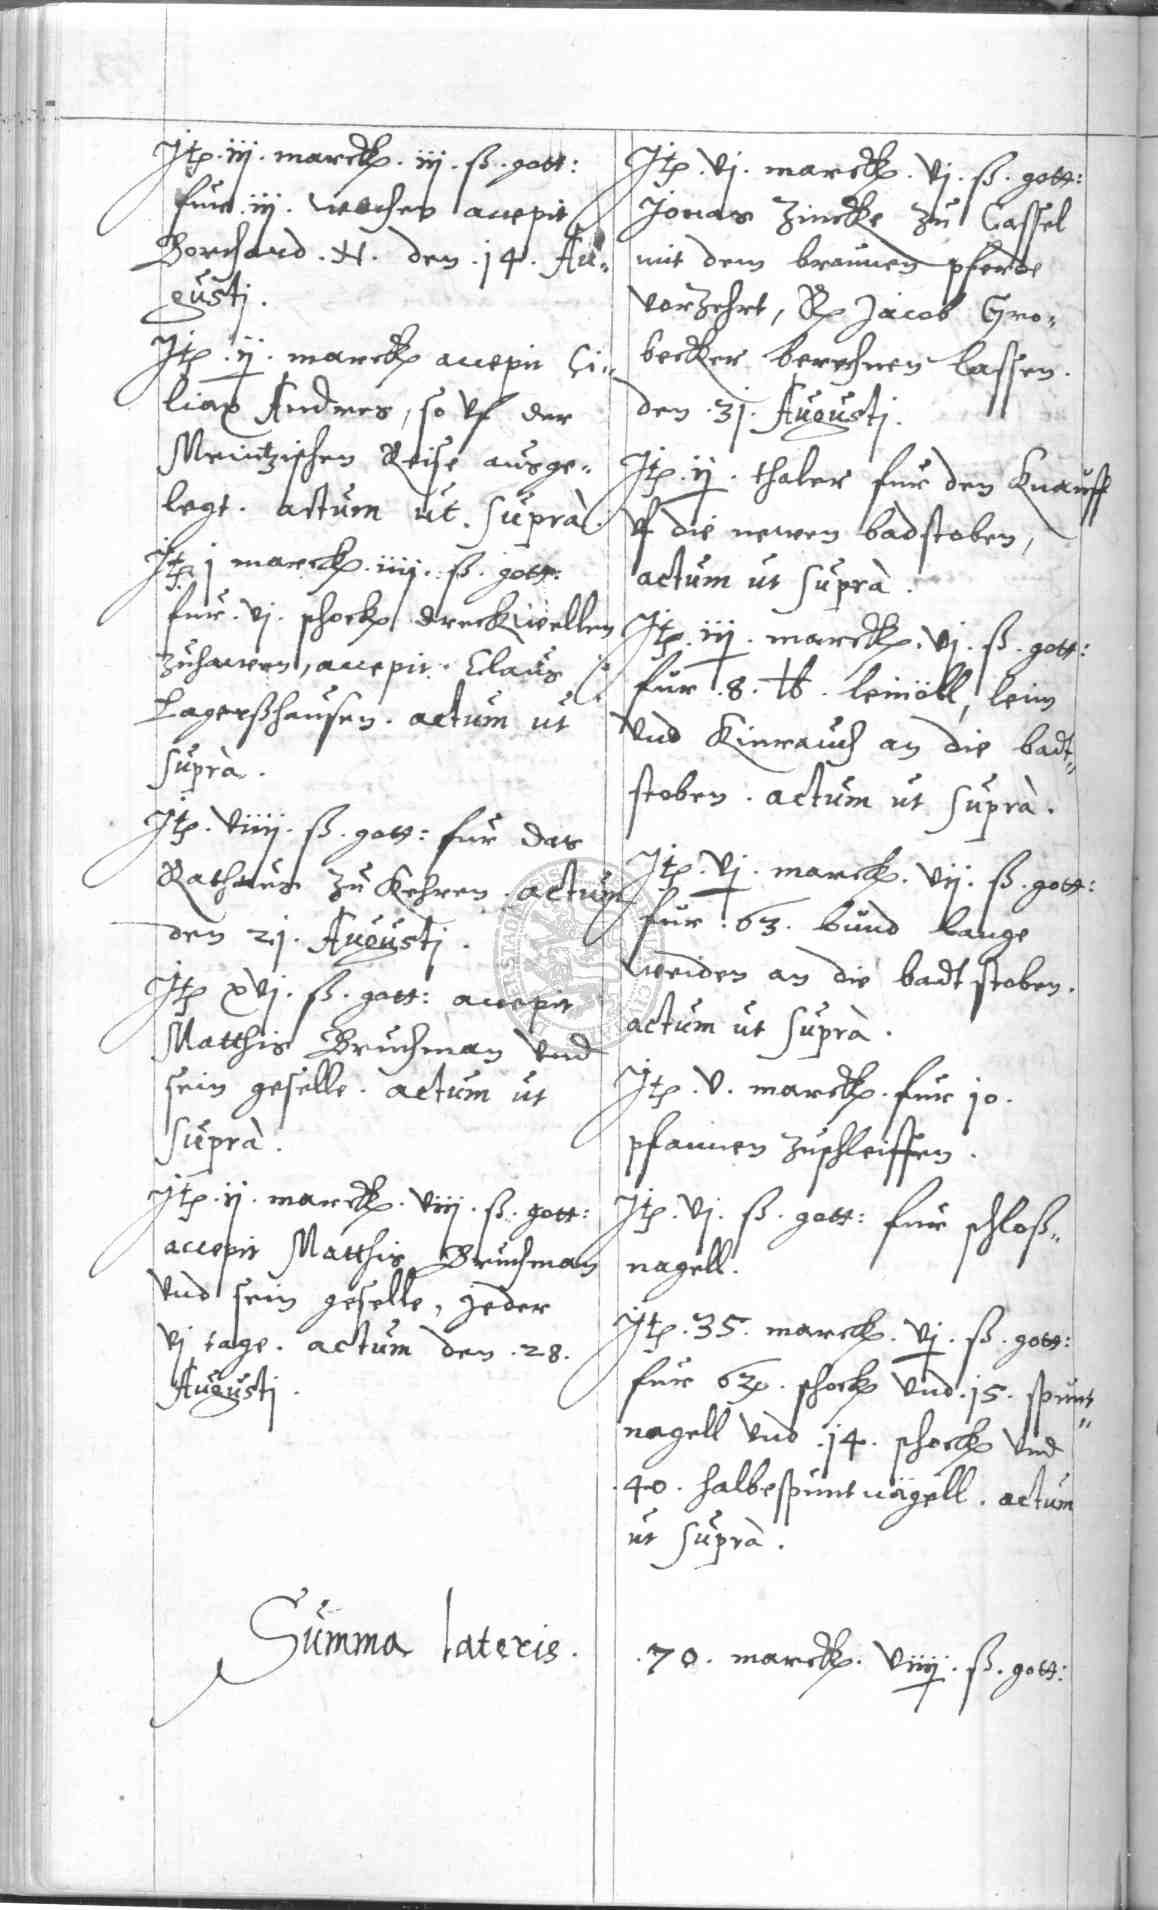 Jtp. iij. marck. iij. ß. gott:
fur. iij. wochen accepit
Borchard. N. den. 14. Au-
gustj.
Jtp. ij. marck accepit Ci-
liax Andres, so vf der
Meintzischen Reise ausge-
legt. actum ut. suprà.
Jtp j marck. iiij. ß. gott:
fur. vj. schock dreckwellen
zuhawen, accepit. Claus
Lagershausen. actum ut
suprà.
Jtp. viiij. ß. gott: fur das
Rathaus zu kehren. actum
den 21. Augustj.
Jtp xvj. ß. gott: accepit
Matthis Bruchman vnd
sein geselle. actum ut
suprà.
Jtp. ij. marck. viij. ß. gott:
accepit Matthis Bruchman
vnd sein geselle, jeder
vj tage. actum den. 28.
Augustj.
Jtp. vj. marck. vj. ß. gott:
Jonas Zincke zu Cassel
mit dem braunen pferde
vorzehrt, Jacob Gro-
becker berechnen lassen.
den. 31. Augustj.
Jtp. ij. thaler fur den Knauff
vf die newen badstoben,
actum ut suprà.
Jtp. iij. marck. vj. ß. gott:
fur. 8. lb. leinöll, leim
vnd Kinrauch an die badt-
stoben. actum ut suprà.
Jtp. vj. marck. vij. ß. gott:
fur. 63. bund lange
weiden an die badt stoben.
actum ut suprà.
Jtp. v. marck. fur 10.
pfannen zuschleiffen.
Jtp. vj. ß. gott: fur schloß-
nagell.
Jtp. 35. marck. vj. ß. gott:
fur schock vnd. 15. spunt-
nagell vnd. 14. schock vnd
40. halbespuntnägell. actum
ut suprà.
Summa lateris.
70. marck. viiij. ß. gott: